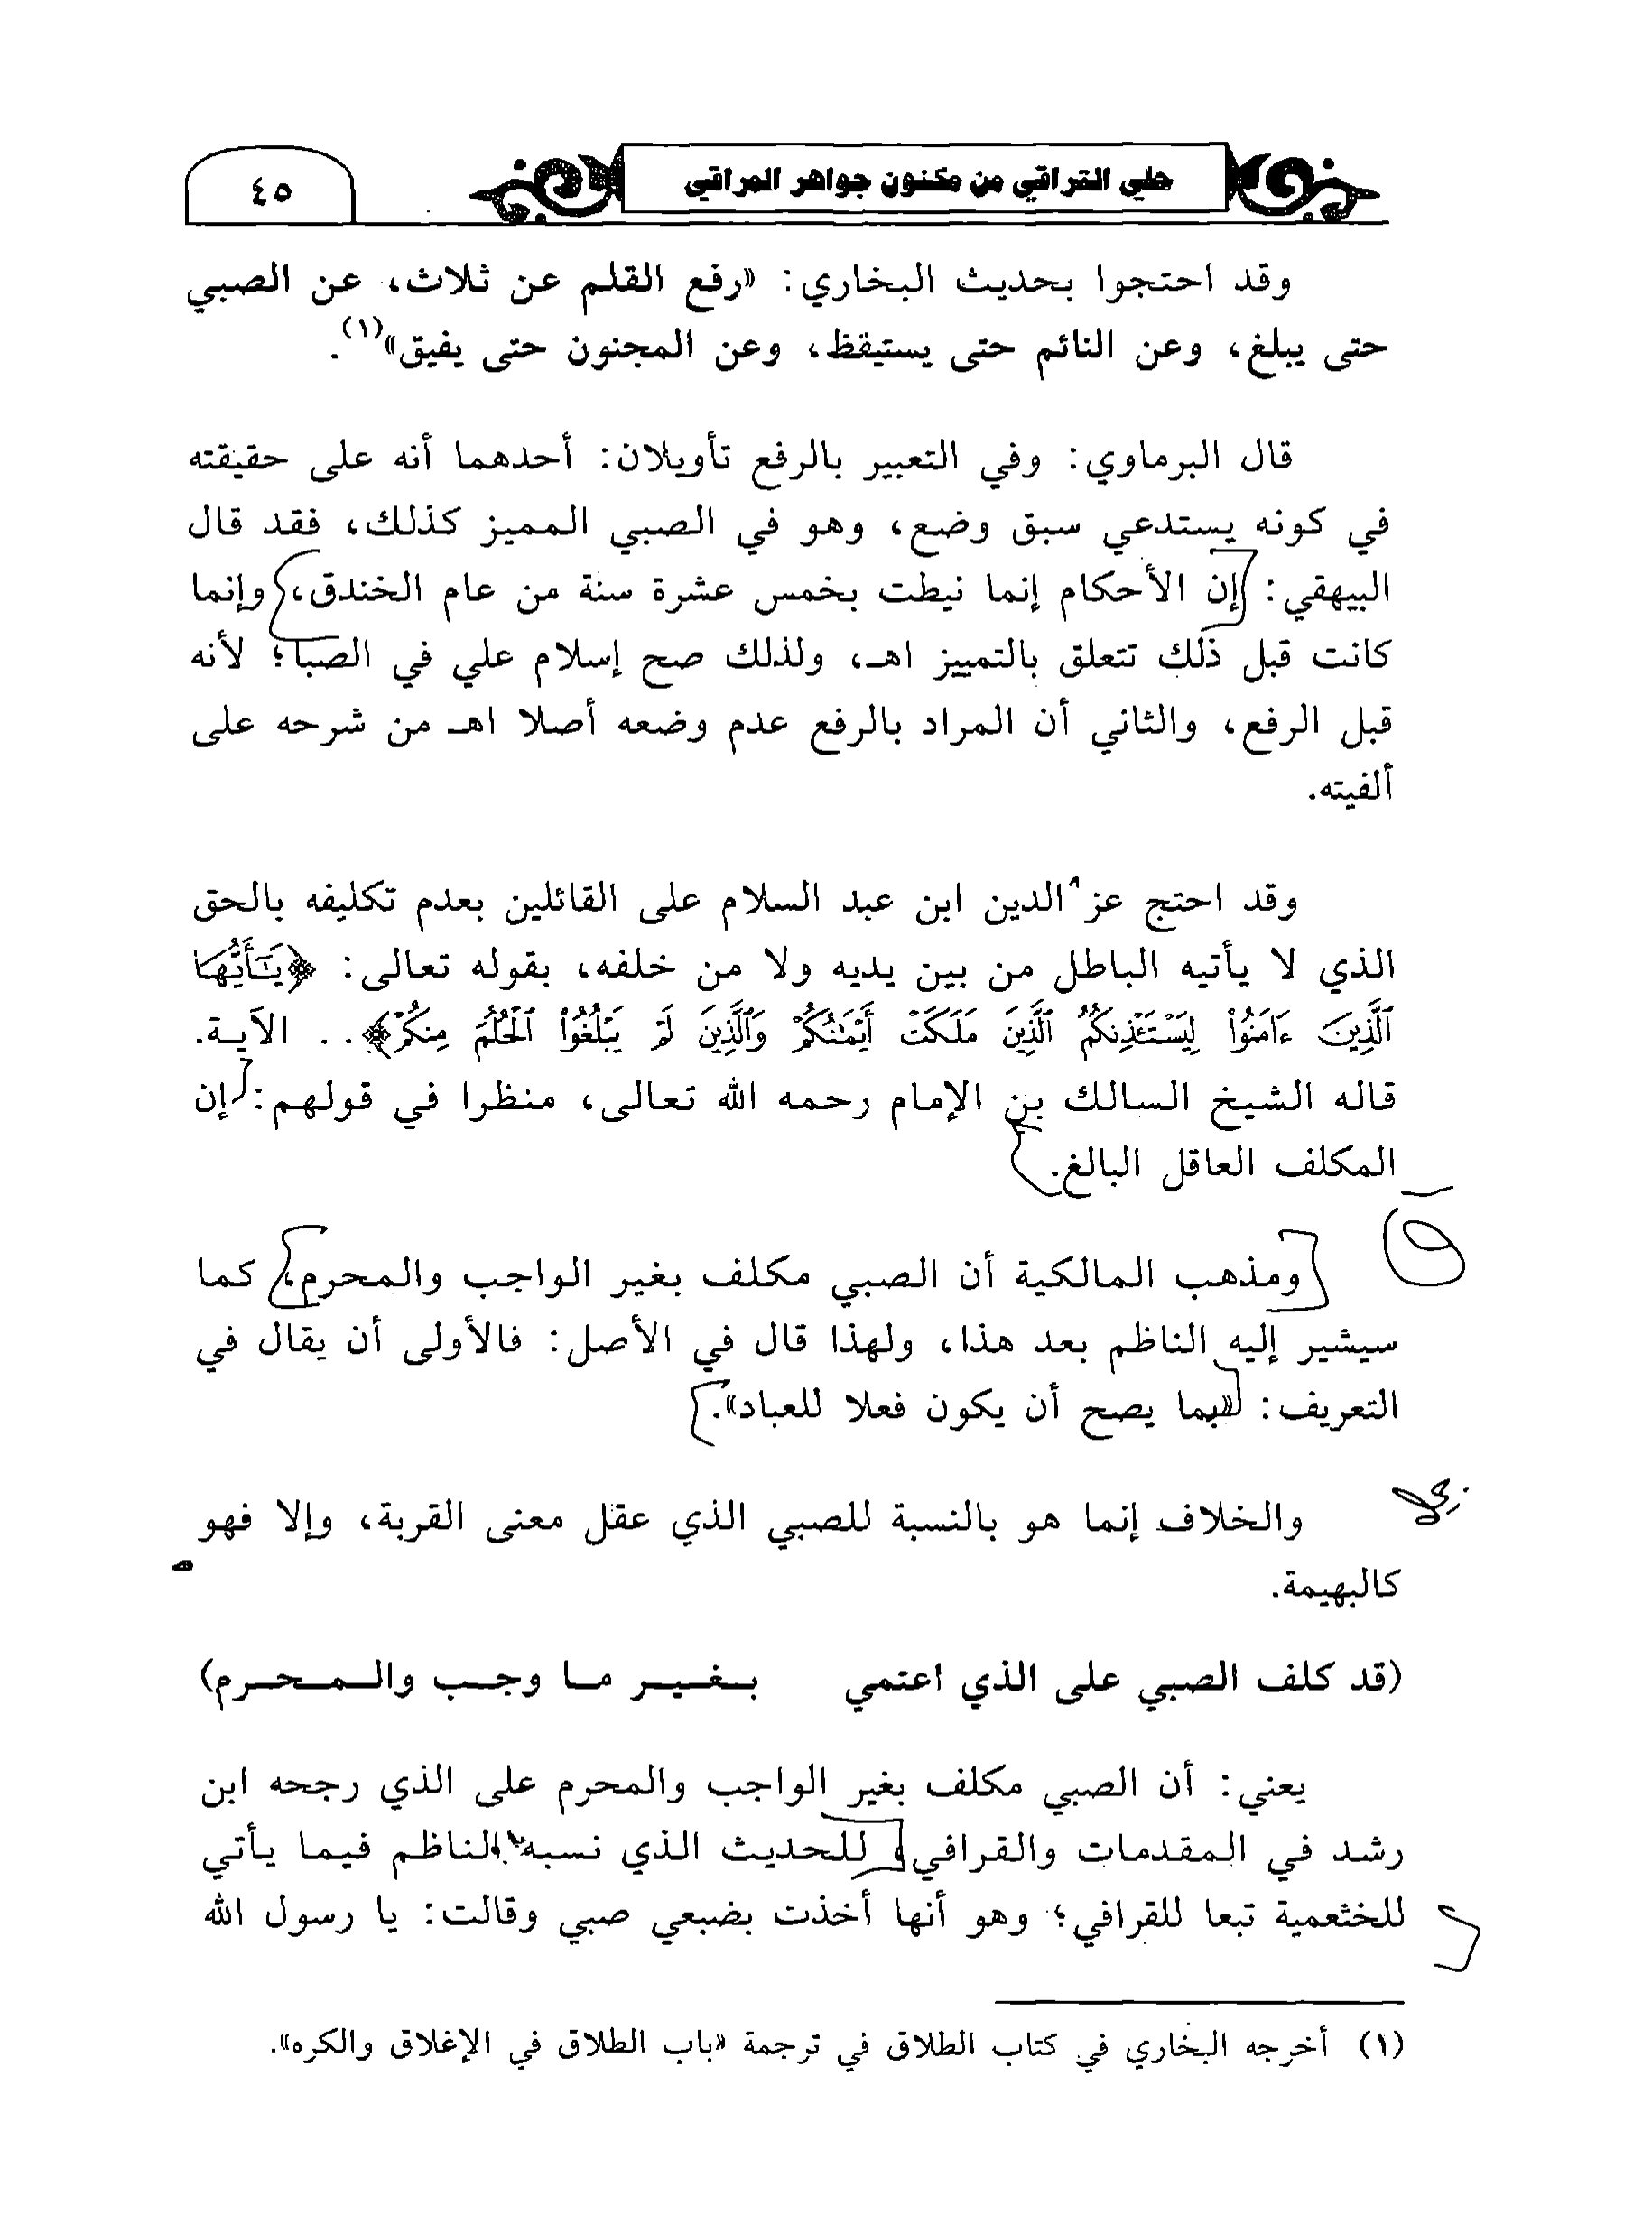 حلي التراقي من مكنون جواهر المراقي
٤٥
وقد احتجوا بحديث البخاري: «رفع القلم عن ثلاث، عن الصبي
حتى يبلغ، وعن النائم حتى يستيقظ، وعن المجنون حتى يفيق»(١).
قال البرماوي: وفي التعبير بالرفع تأويلان: أحدهما أنه على حقيقته
في كونه يستدعي سبق وضع، وهو في الصبي المميز كذلك، فقد قال
البيهقي: إن الأحكام إنما نيطت بخمس عشرة سنة من عام الخندق، وإنما
كانت قبل ذلك تتعلق بالتمييز اهـ، ولذلك صح إسلام علي في الصبا؛ لأنه
قبل الرفع، والثاني أن المراد بالرفع عدم وضعه أصلا اهـ من شرحه على
ألفيته.
وقد احتج عز الدين ابن عبد السلام على القائلين بعدم تكليفه بالحق
الذي لا يأتيه الباطل من بين يديه ولا من خلفه، بقوله تعالى: ﴿يَٰٓأَيُّهَا
ٱلَّذِينَ ءَامَنُوا۟ لِيَسْتَـْٔذِنكُمُ ٱلَّذِينَ مَلَكَتْ أَيْمَٰنُكُمْ وَٱلَّذِينَ لَمْ يَبْلُغُوا۟ ٱلْحُلُمَ مِنكُمْ﴾.. الآية.
قاله الشيخ السالك بن الإمام رحمه الله تعالى، منظرا في قولهم: إن
المكلف العاقل البالغ.
ومذهب المالكية أن الصبي مكلف بغير الواجب والمحرم، كما
سيشير إليه الناظم بعد هذا، ولهذا قال في الأصل: فالأولى أن يقال في
التعريف: «بما يصح أن يكون فعلا للعباد».
والخلاف إنما هو بالنسبة للصبي الذي عقل معنى القربة، وإلا فهو
كالبهيمة.
(قد كلف الصبي على الذي اعتمي بـغـيـر مـا وجـب والـمـحـرم)
يعني: أن الصبي مكلف بغير الواجب والمحرم على الذي رجحه ابن
رشد في المقدمات والقرافي؛ للحديث الذي نسبه الناظم فيما يأتي
للخثعمية تبعا للقرافي؛ وهو أنها أخذت بضبعي صبي وقالت: يا رسول الله
(١) أخرجه البخاري في كتاب الطلاق في ترجمة «باب الطلاق في الإغلاق والكره».